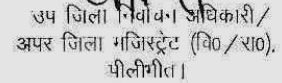 उप जिला निर्वाचन अधिकारी/
अपर जिला मजिस्ट्रेट (वि०/रा०),
पीलीभीत।